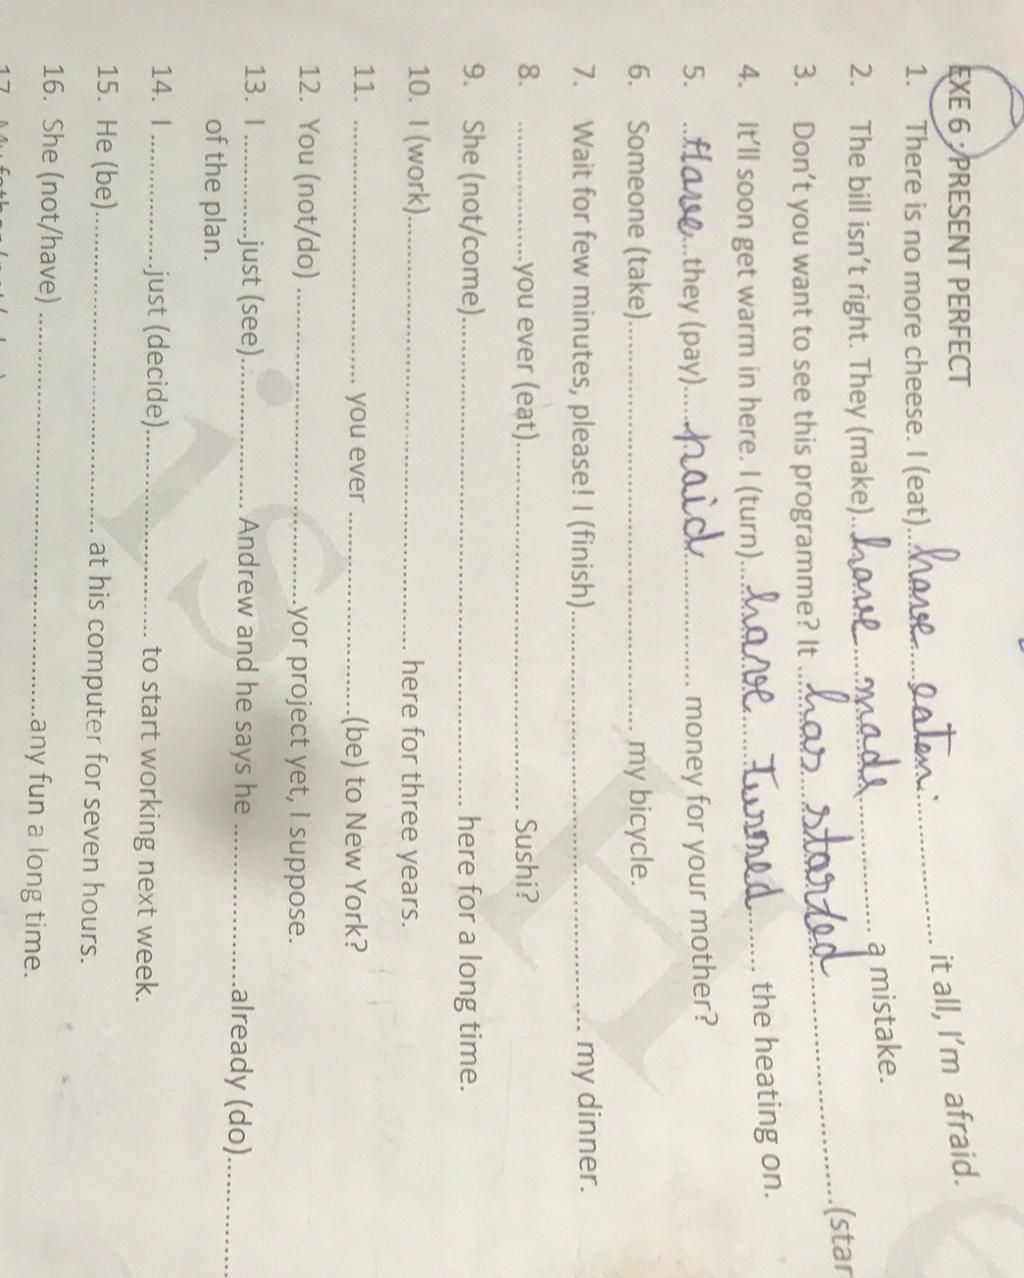 EXE 6 · PRESENT PERFECT
1. There is no more cheese. I (eat)...have eaten.................. it all, I'm afraid.
2. The bill isn't right. They (make)..have made................ a mistake.
3. Don't you want to see this programme? It ...has started..............................(star
4. It'll soon get warm in here. I (turn)...have Turned....... the heating on.
5. ..Have..they (pay)....paid................ money for your mother?
6. Someone (take)........................................................ my bicycle.
7. Wait for few minutes, please! I (finish)........................................................... my dinner.
8. ....................you ever (eat)................................................... Sushi?
9. She (not/come)..................................................................... here for a long time.
10. I (work)............................................................. here for three years.
11. ..................................... you ever ............................(be) to New York?
12. You (not/do) .............................................yor project yet, I suppose.
13. I ..............just (see)..................... Andrew and he says he .......................already (do)................
of the plan.
14. I ..................just (decide)............................. to start working next week.
15. He (be)............................................. at his computer for seven hours.
16. She (not/have) .......................................................any fun a long time.
17. My father